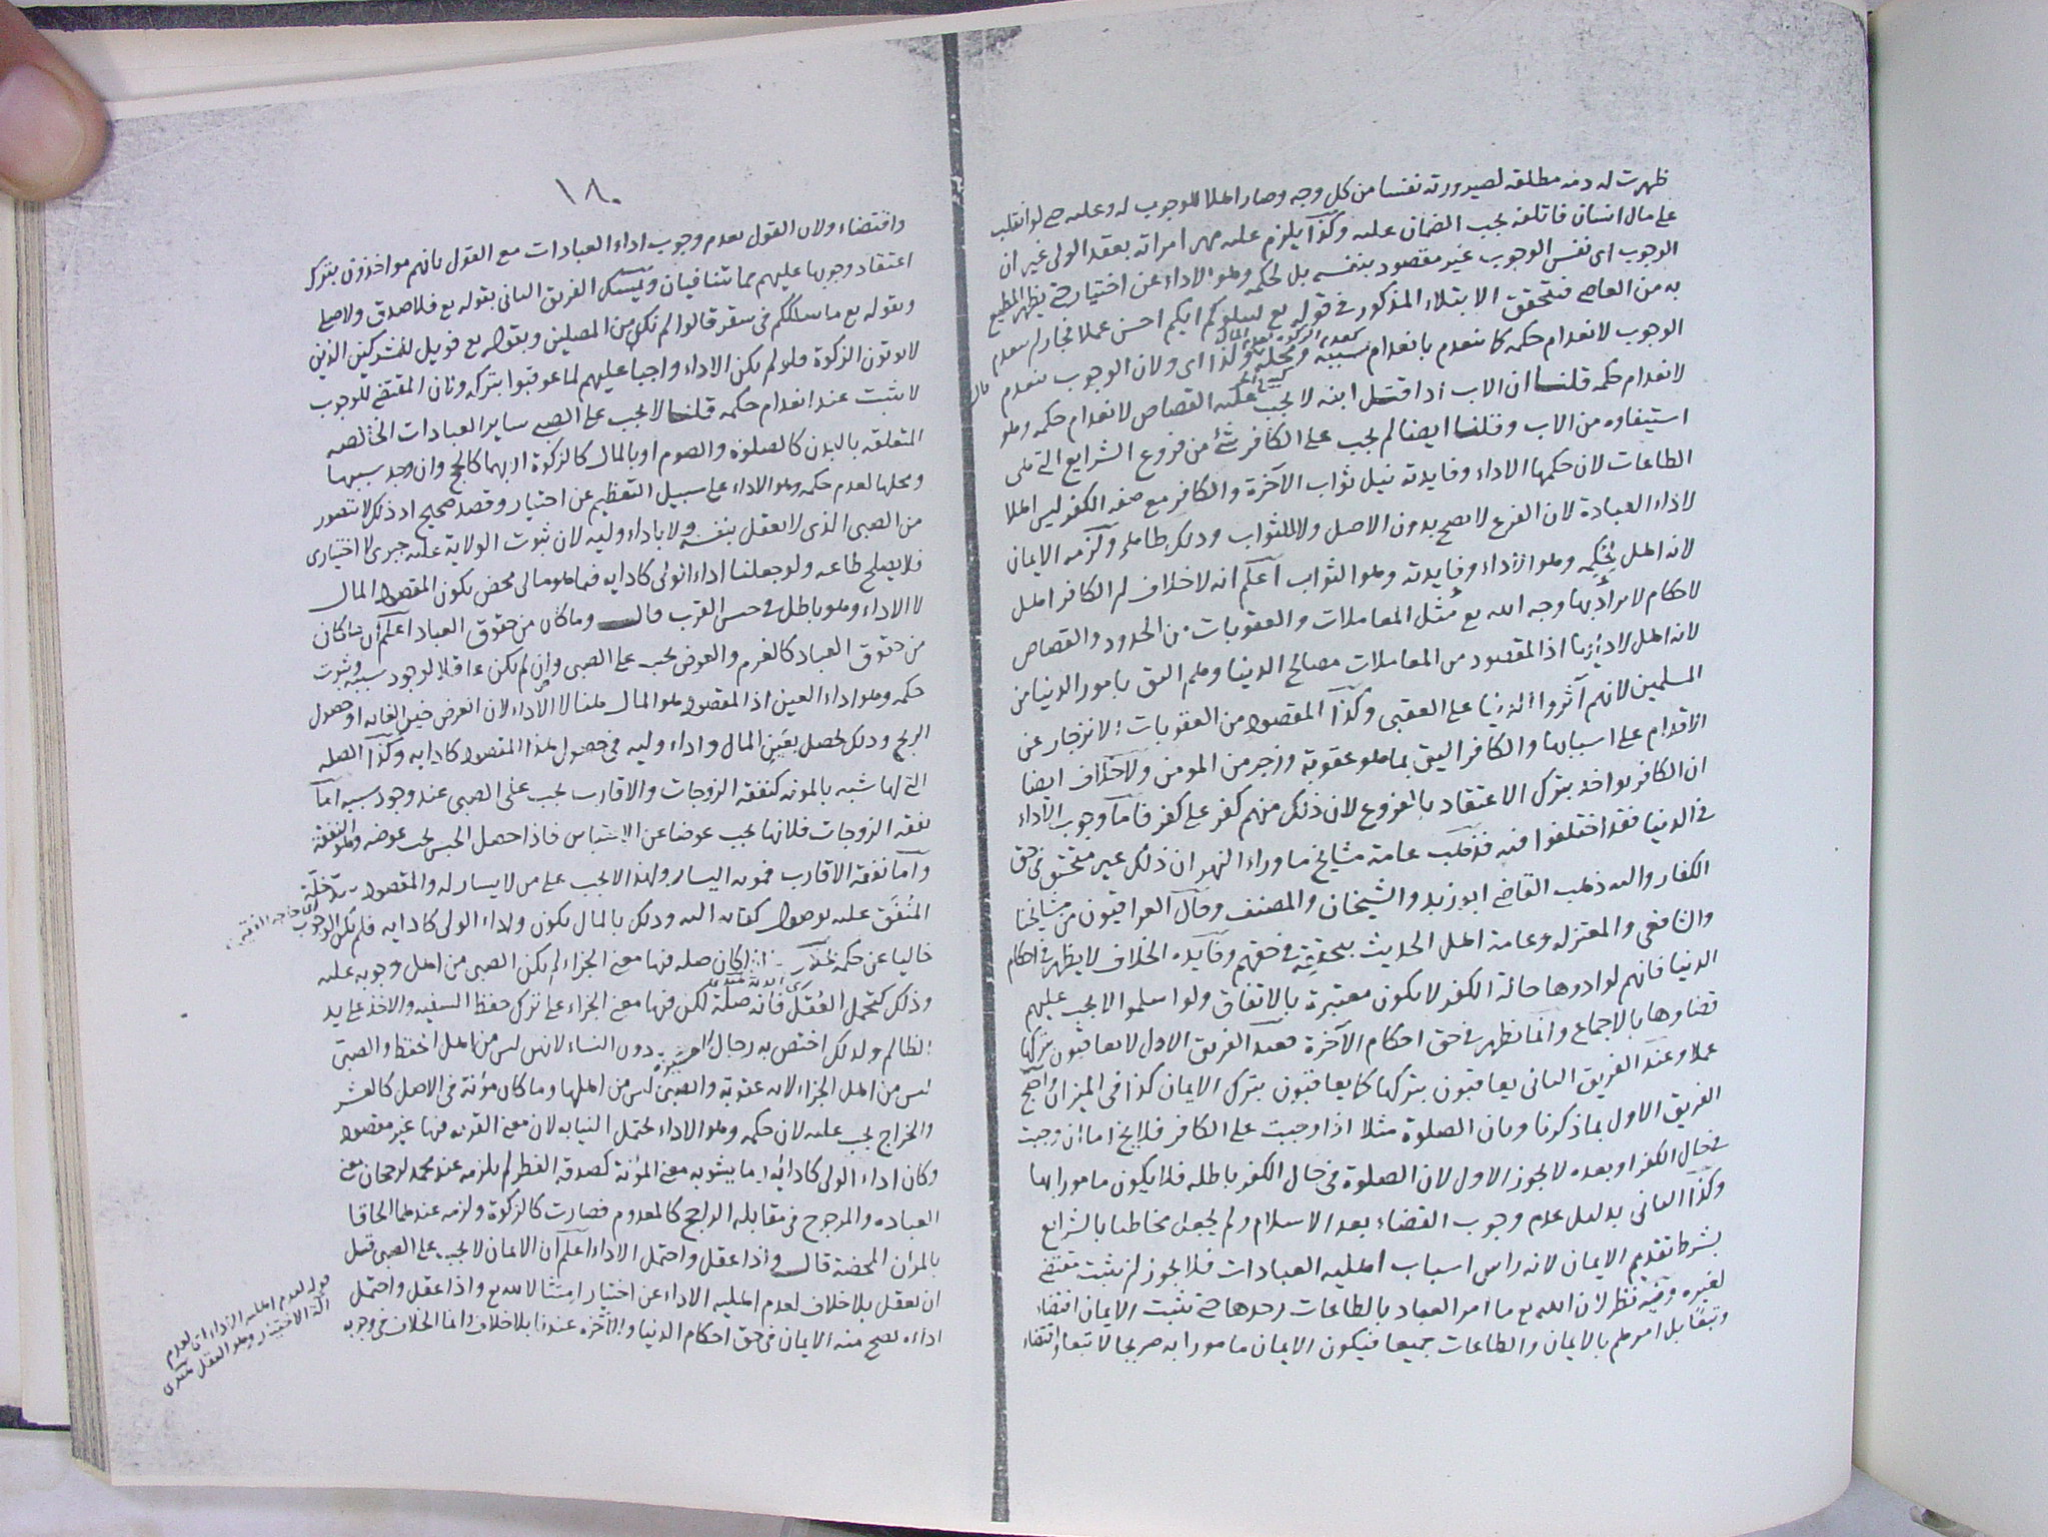 ظهرت له ذمه مطلقه لصيرورته نفسا من كل وجه وصار اهلا للوجوب له وعليه حتى لو انقلب
على مال انسان فاتلفه يجب الضمان عليه وكذا يلزم عليه مهر امراته بعقد الولى غير ان
الوجوب اى نفس الوجوب غير مقصود بنفسه بل لحكمه وهو الاداء عن اختيار حتى يظهر المطيع
به من العاصى فتحقق الابتلاء المذكور فى قوله تع ليبلوكم ايكم احسن عملا فجاز ان ينعدم
الوجوب لانعدام حكمه كما ينعدم بانعدام سببه ومحله ولذا اى ولان الوجوب ينعدم
لانعدام حكمه قلنا ان الاب اذا قتل ابنه لا يجب عليه القصاص لانعدام حكمه وهو
استيفاوه من الاب وقلنا ايضا لم يجب على الكافر شئ من فروع الشرايع التى هى
الطاعات لان حكمها الاداء وفايدته نيل ثواب الآخرة والكافر مع صفه الكفر ليس اهلا
لاداء العبادة لان الفرع لا يصح بدون الاصل ولا للثواب وذلك ظاهر ولزمه الايمان
لانه اهل لحكمه وهو الاداء وفايدته وهو الثواب اعلم انه لا خلاف ان الكافر اهل
لاحكام لا يراد بها وجه الله تع مثل المعاملات والعقوبات من الحدود والقصاص
لانه اهل لادايها اذ المقصود من المعاملات مصالح الدنيا وهم اليق بامور الدنيا من
المسلمين لانهم آثروا الدنيا على العقبى وكذا المقصود من العقوبات الانزجار عن
الاقدام على اسبابها والكافر اليق بما هو عقوبة وزجر من المومن ولا خلاف ايضا
ان الكافر يواخذ بترك الاعتقاد بالفروع لان ذلك منهم كفر على كفر فاما وجوب الاداء
فى الدنيا فقد اختلفوا فيه فذهب عامة مشايخ ما وراء النهر ان ذلك غير متحقق فى حق
الكفار واليه ذهب القاضى ابو زيد والشيخان والمصنف وقال العراقيون من مشايخنا
والشافعى والمعتزله وعامة اهل الحديث بتحققه فى حقهم وفايده الخلاف لا يظهر فى احكام
الدنيا فانهم لو ادوها حالة الكفر لا يكون معتبرة بالاتفاق ولو اسلموا لا يجب عليهم
قضاوها بالاجماع وانما تظهر فى حق احكام الآخرة فعند الفريق الاول لا يعاقبون بتركها
عملا وعند الفريق الثانى يعاقبون بتركها كما يعاقبون بترك الايمان كذا فى الميزان واحتج
الفريق الاول بما ذكرنا وبان الصلوة مثلا اذا وجبت على الكافر فلا يخ اما ان وجبت
فى حال الكفر او بعده لا يجوز الاول لان الصلوة فى حال الكفر باطله فلا يكون مامورا بها
وكذا الثانى بدليل عدم وجوب القضاء بعد الاسلام ولم يجعل مخاطبا بالشرايع
بشرط تقديم الايمان لانه راس اسباب اهليه العبادات فلا يجوز ان يثبت مقتضى
لغيره وفيه نظر لان الله تع ما امر العباد بالطاعات وحدها حتى يثبت الايمان اقتضاء
بل امرهم بالايمان والطاعات جميعا فيكون الايمان مامورا به صريحا لا تبعا واقتضاء
١٨٠
واقتضاء ولان القول بعدم وجوب اداء العبادات مع القول بانهم مواخذون بترك
اعتقاد وجوبها عليهم مما يتنافيان وتمسك الفريق الثانى بقوله تع فلا صدق ولا صلى
وبقوله تع ما سلككم فى سقر قالوا لم نك من المصلين وبقوله تع فويل للمشركين الذين
لا يوتون الزكوة فلو لم يكن الاداء واجبا عليهم لما عوقبوا بتركه وبان المقتضى للوجوب
لا يثبت عند انعدام حكمه قلنا لا يجب على الصبى ساير العبادات الخالصه
المتعلقه بالبدن كالصلوة والصوم او بالمال كالزكوة او بهما كالحج وان وجد سببها
ومحلها لعدم حكمه وهو الاداء على سبيل التعظيم عن اختيار وقصد صحيح اذ ذلك لا يتصور
من الصبى الذى لا يعقل بنفسه ولا باداء وليه لان ثبوت الولاية عليه جبرى لا اختيارى
فلا يصلح طاعه ولو جعلنا اداء الولى كادايه فيما هو مالى محض يكون المقصود المال
لا الاداء وهو باطل فى جنس القرب قال وما كان من حقوق العباد اعلم ان ما كان
من حقوق العباد كالغرم والعوض يجب على الصبى وان لم يكن عاقلا لوجود سببه وثبوت
حكمه وهو اداء العين اذ المقصود هو المال هنا لا الاداء لان الغرض جبر الفايت او حصول
الربح وذلك يحصل بعين المال واداء وليه فى حصول هذا المقصود كادايه وكذا الصله
التى لها شبه بالمونه كنفقة الزوجات والاقارب يجب على الصبى عند وجود سببه اما
نفقه الزوجات فلانها يجب عوضا عن الاحتباس فاذا حصل الحبس يجب عوضه وهو النفقة
واما نفقة الاقارب فمونه اليسار ولهذا لا يجب على من لا يسار له والمقصود سد خله
المنفق عليه بوصول كفايته اليه وذلك بالمال يكون واداء الولى كادايه فلم يكن الوجوب
خاليا عن حكمه كان صله فيها معنى الجزاء لم يكن الصبى من اهل وجوبه عليه
وذلك كتحمل العقل فانه صلة لكن فيها معنى الجزاء على ترك حفظ السفيه والاخذ على يد
الظالم ولذلك اختص به رجال العشيره دون النساء لانهن ليس من اهل الحفظ والصبى
ليس من اهل الجزاء لانه عقوبة والصبى ليس من اهلها وما كان مؤنة فى الاصل كالعشر
والخراج يجب عليه لان حكمه وهو الاداء يحتمل النيابه لان معنى القربه فيها غير مقصود
وكان اداء الولى كادائه وما يشوبه معنى المؤنة كصدقة الفطر لم يلزمه عند محمد لرجحان معنى
العباده والمرجوح فى مقابله الراجح كالمعدوم فصارت كالزكوة ولزمه عندهما الحاقا
بالمؤن المحضة قال واذا عقل واحتمل الاداء اعلم ان الايمان لا يجب على الصبى قبل
ان يعقل بلا خلاف لعدم اهلية الاداء عن اختيار امتثالا لله تع واذا عقل واحتمل
اداءه يصح منه الايمان فى حق احكام الدنيا والآخره عندنا بلا خلاف وانما الخلاف فى وجوبه
قوله لعدم اهلية الاداء اى لعدم
آلة الاختيار وهو العقل